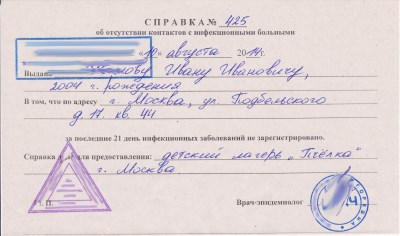 СПРАВКА № 425
об отсутствии контактов с инфекционными больными
"10" августа 2014г.
Выдана Ивану Ивановичу,
2004 г. рождения
В том, что по адресу г. Москва, ул. Подбельского
д. 17. кв. 44
за последние 21 день инфекционных заболеваний не зарегистрировано.
Справка для предоставления: детский лагерь "Пчёлка"
г. Москва
М. П. Врач-эпидемиолог